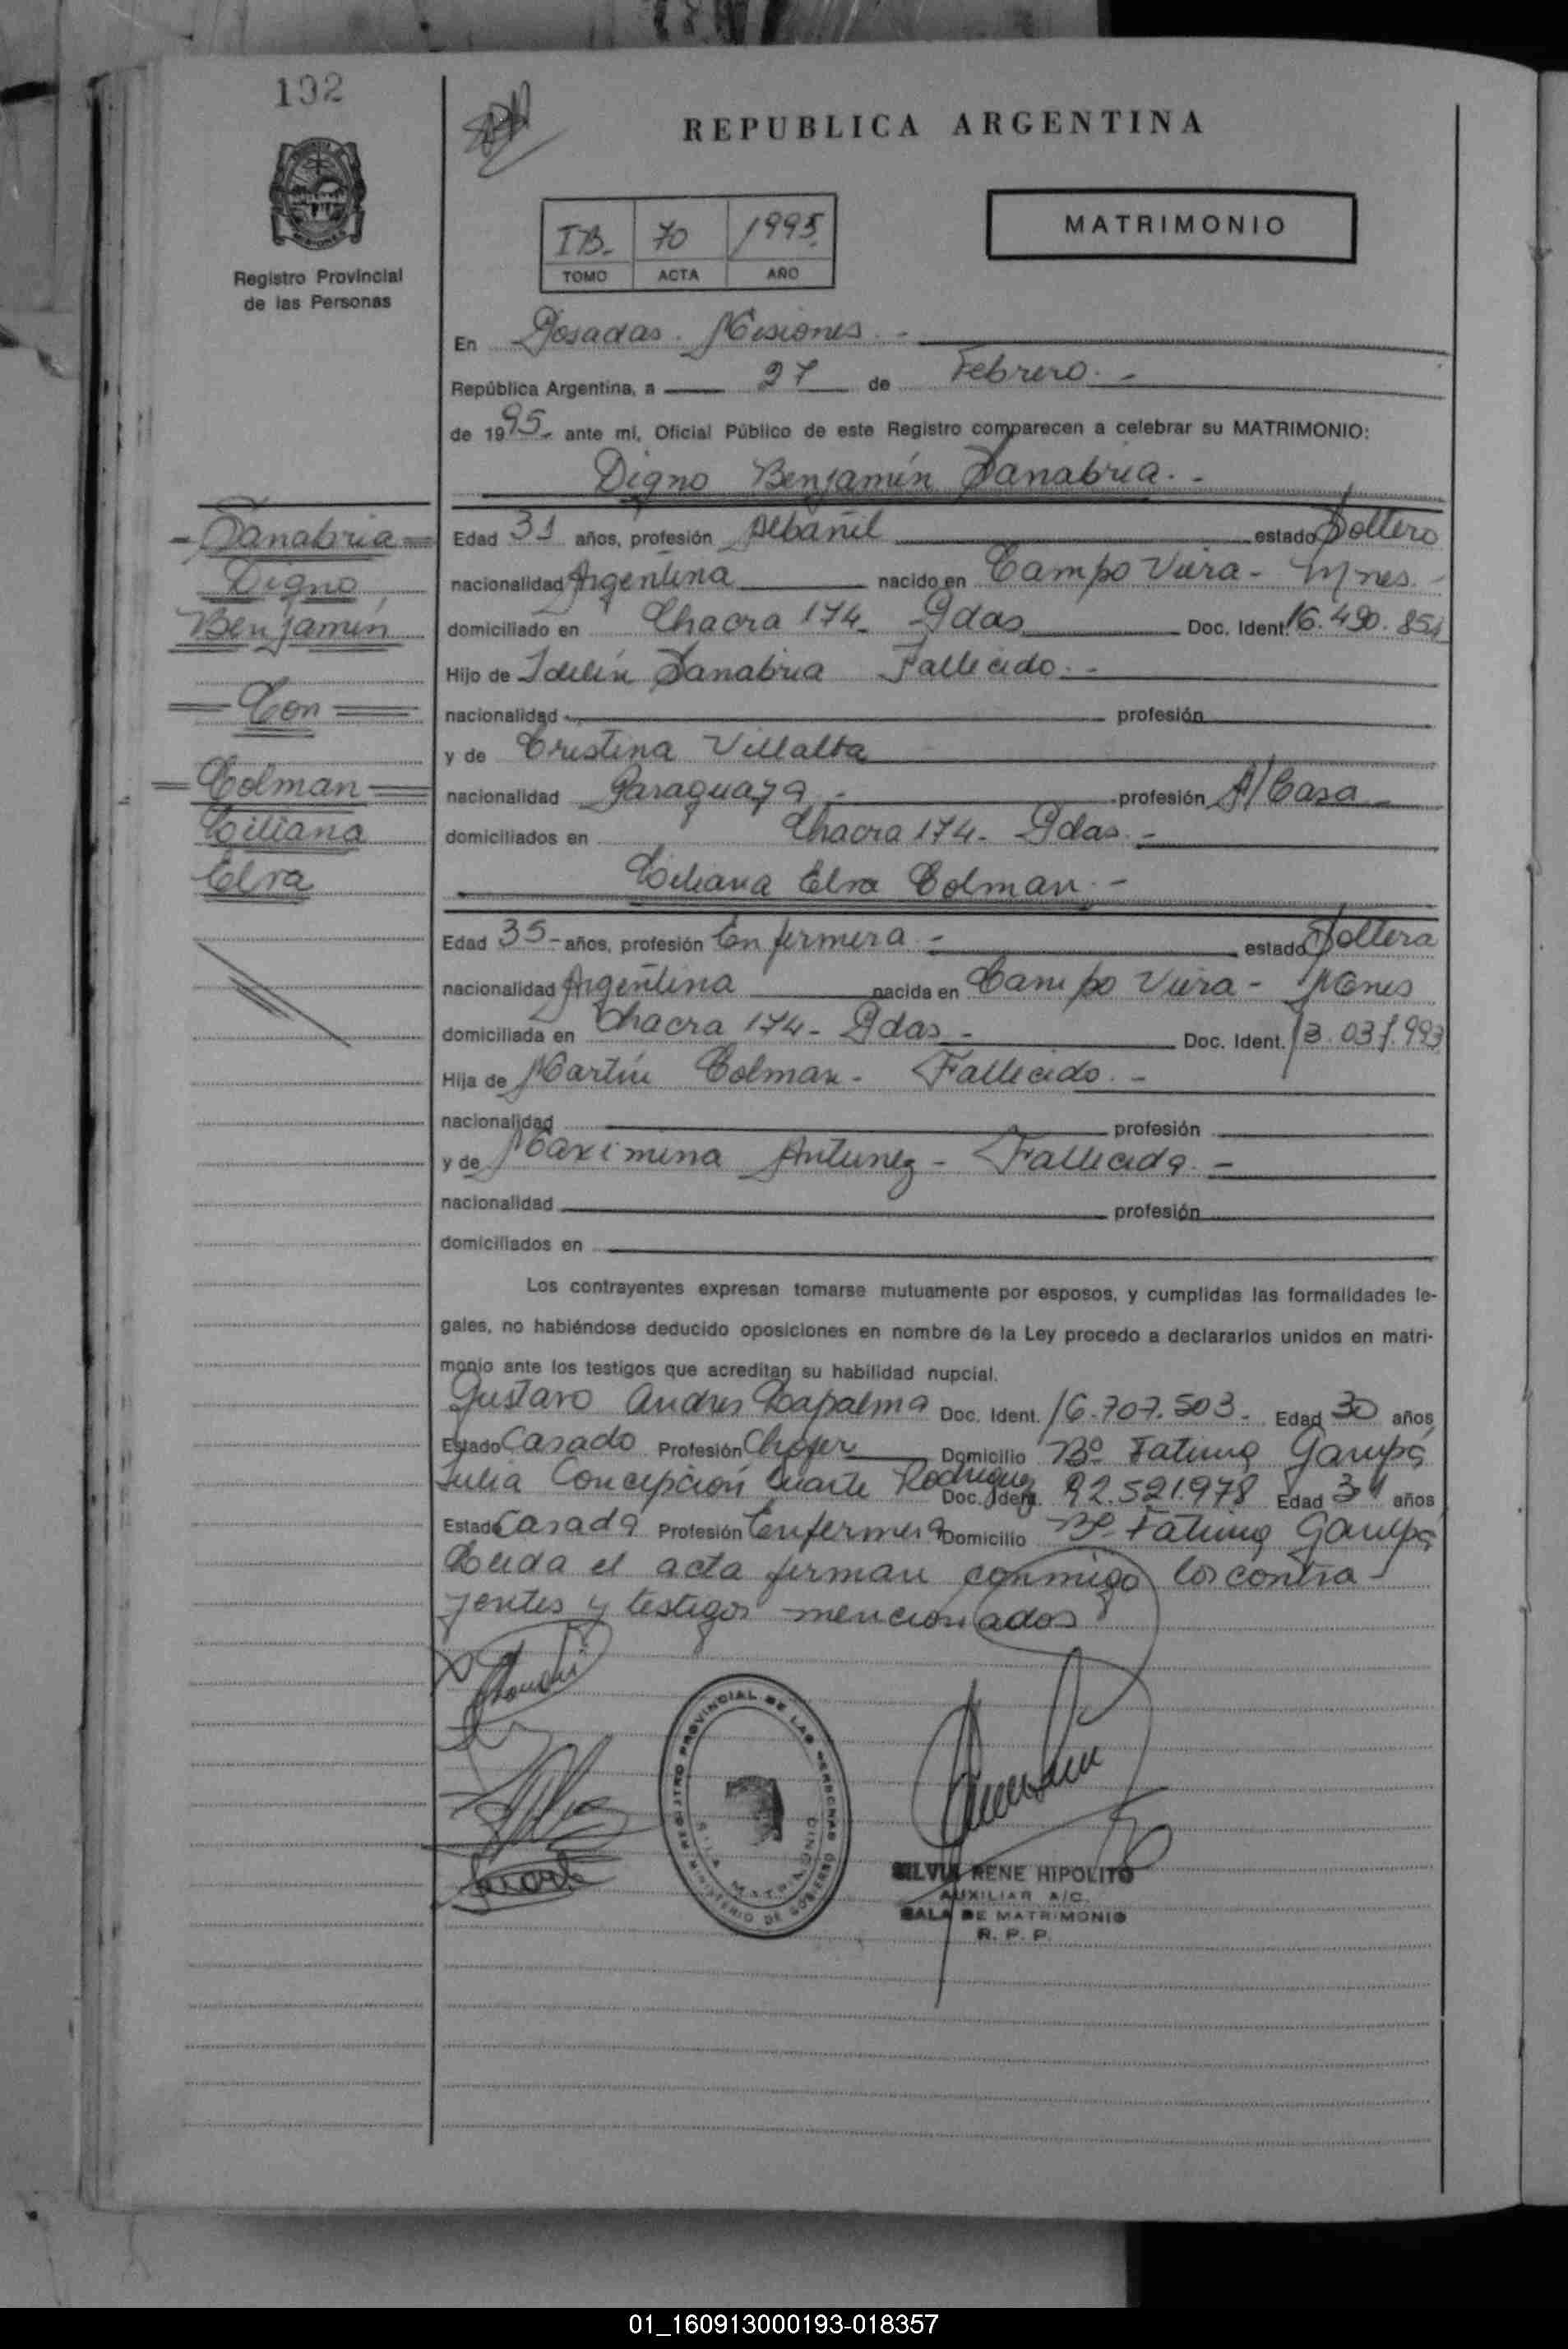 192
REPUBLICA ARGENTINA
MATRIMONIO
IB- 70 1995
TOMO ACTA AÑO
Registro Provincial
de las Personas
En Posadas. Misiones. -
República Argentina, a 27 de Febrero. -
de 1995- ante mi, Oficial Público de este Registro comparecen a celebrar su MATRIMONIO:
Digno Benjamín Sanabria. -
- Sanabria =
Digno
Benjamín
= Con =
= Colman =
Liliana
Elva
Edad 31 años, profesión Albañil estado Soltero
nacionalidad Argentina nacido en Campo Viera - Mnes. -
domiciliado en Chacra 174- Pdas Doc. Ident. 16.490.851
Hijo de Idelín Sanabria Fallecido. -
nacionalidad profesión
y de Cristina Villalba
nacionalidad Paraguaya - profesión A/Casa
domiciliados en Chacra 174- Pdas. -
Liliana Elva Colman. -
Edad 35- años, profesión Enfermera - estado Soltera
nacionalidad Argentina nacida en Campo Viera - Mnes
domiciliada en Chacra 174- Pdas - Doc. Ident. 13.037.993
Hija de Martín Colman - Fallecido. -
nacionalidad profesión
y de Maximina Antunez - Fallecida. -
nacionalidad profesión
domiciliados en
Los contrayentes expresan tomarse mutuamente por esposos, y cumplidas las formalidades le-
gales, no habiéndose deducido oposiciones en nombre de la Ley procedo a declararlos unidos en matri-
monio ante los testigos que acreditan su habilidad nupcial.
Gustavo Andres Lapalma Doc. Ident. 16.707.503- Edad 30 años
Estado Casado Profesión Chofer Domicilio Bº Fatima Garupá
Julia Concepción Duarte Rodriguez Doc. Ident. 92.521.978 Edad años
Estado Casada Profesión Enfermera Domicilio Bº Fatima Garupá
Leida el acta firman conmigo los contra-
yentes y testigos mencionados
REGISTRO PROVINCIAL DE LAS PERSONAS
MINISTERIO DE GOBIERNO
MATRIMONIO
SILVIA RENE HIPOLITO
AUXILIAR A/C.
SALA DE MATRIMONIO
R. P. P.
01_160913000193-018357